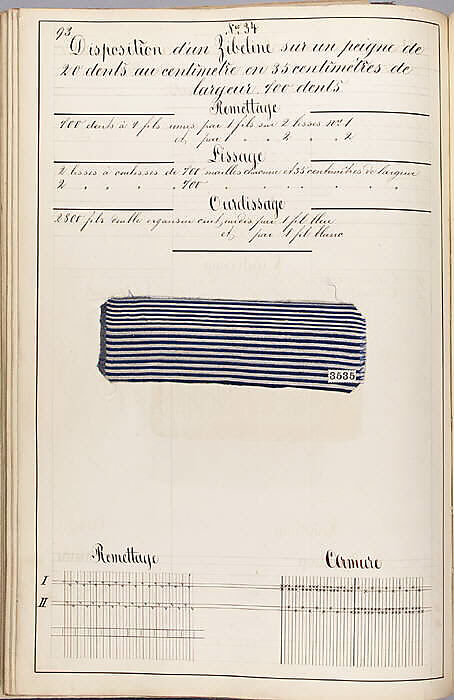 93
Nº 34
Disposition d'un Zibeline sur un peigne de
20 dents au centimètre en 35 centimètres de
largeur 700 dents
Remettage
700 dents à 4 fils unies par 1 fil sur 2 lisses nº 1
et par 1 " " 2 " " 2
Lissage
2 lisses à coulisses de 700 mailles chacune et 35 centimètres de largeur
2 " " " 700 " " " " " "
Ourdissage
2800 fils double organsin cuit, ourdis par 1 fil bleu
et par 1 fil blanc
3535
Remettage
Armure
I
II